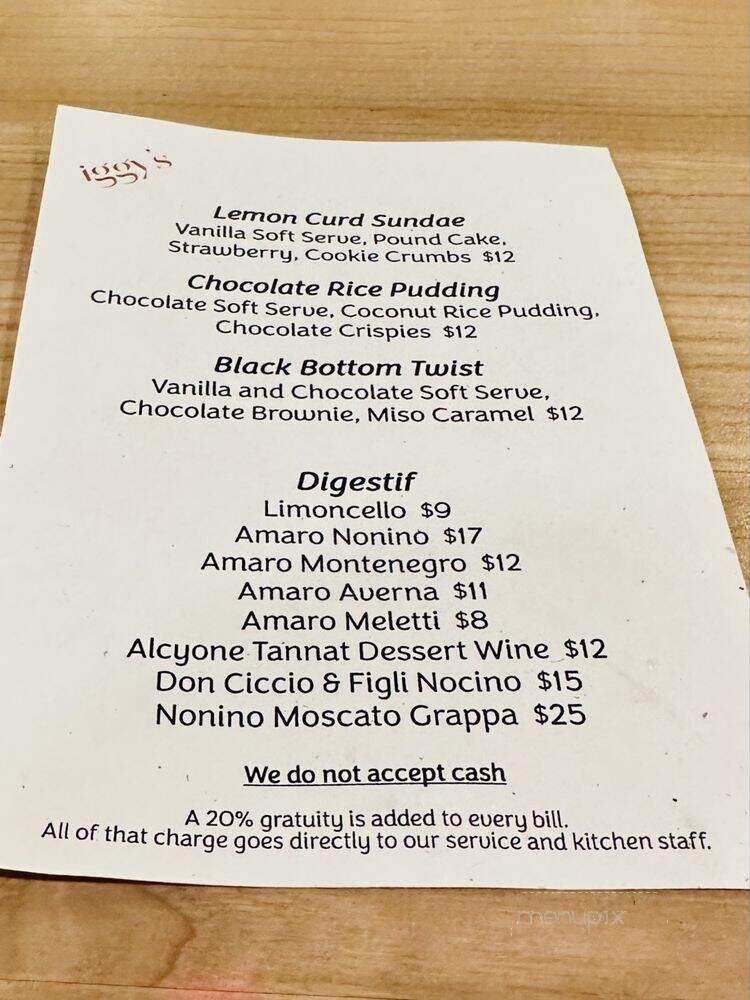 iggy's
Lemon Curd Sundae
Vanilla Soft Serve, Pound Cake,
Strawberry, Cookie Crumbs $12
Chocolate Rice Pudding
Chocolate Soft Serve, Coconut Rice Pudding,
Chocolate Crispies $12
Black Bottom Twist
Vanilla and Chocolate Soft Serve,
Chocolate Brownie, Miso Caramel $12
Digestif
Limoncello $9
Amaro Nonino $17
Amaro Montenegro $12
Amaro Averna $11
Amaro Meletti $8
Alcyone Tannat Dessert Wine $12
Don Ciccio & Figli Nocino $15
Nonino Moscato Grappa $25
We do not accept cash
A 20% gratuity is added to every bill.
All of that charge goes directly to our service and kitchen staff.
menupix